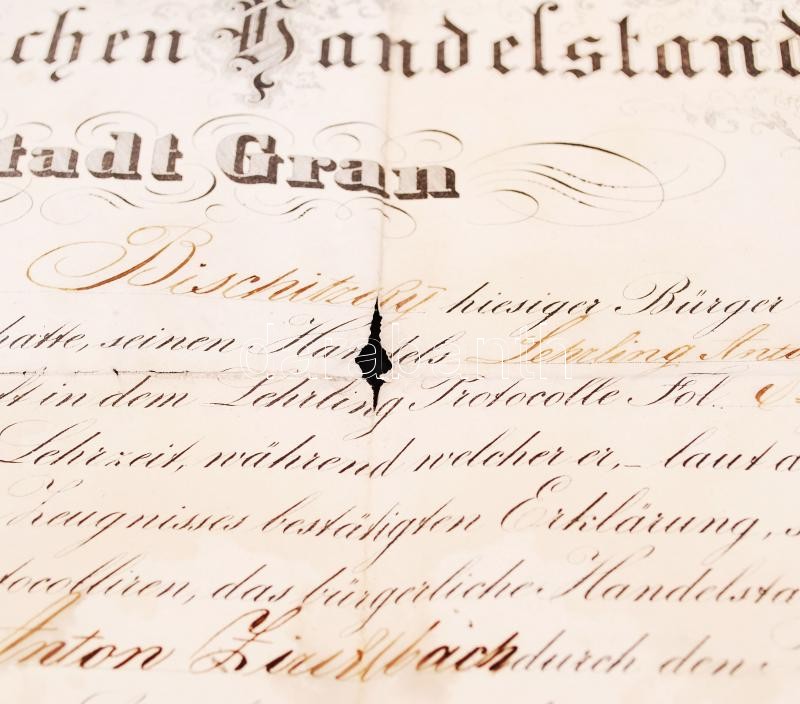 chen Handelstand
tadt Gran
Bischitzky hiesiger Bürger
hatte, seinen Handels Lehrling Anto
in dem Lehrling Protocolle Fol.
Lehrzeit, während welcher er, – laut
Zeugnisses bestätigten Erklärung, s
tocolliren, das bürgerliche Handelsta
Anton durch den
darabanth